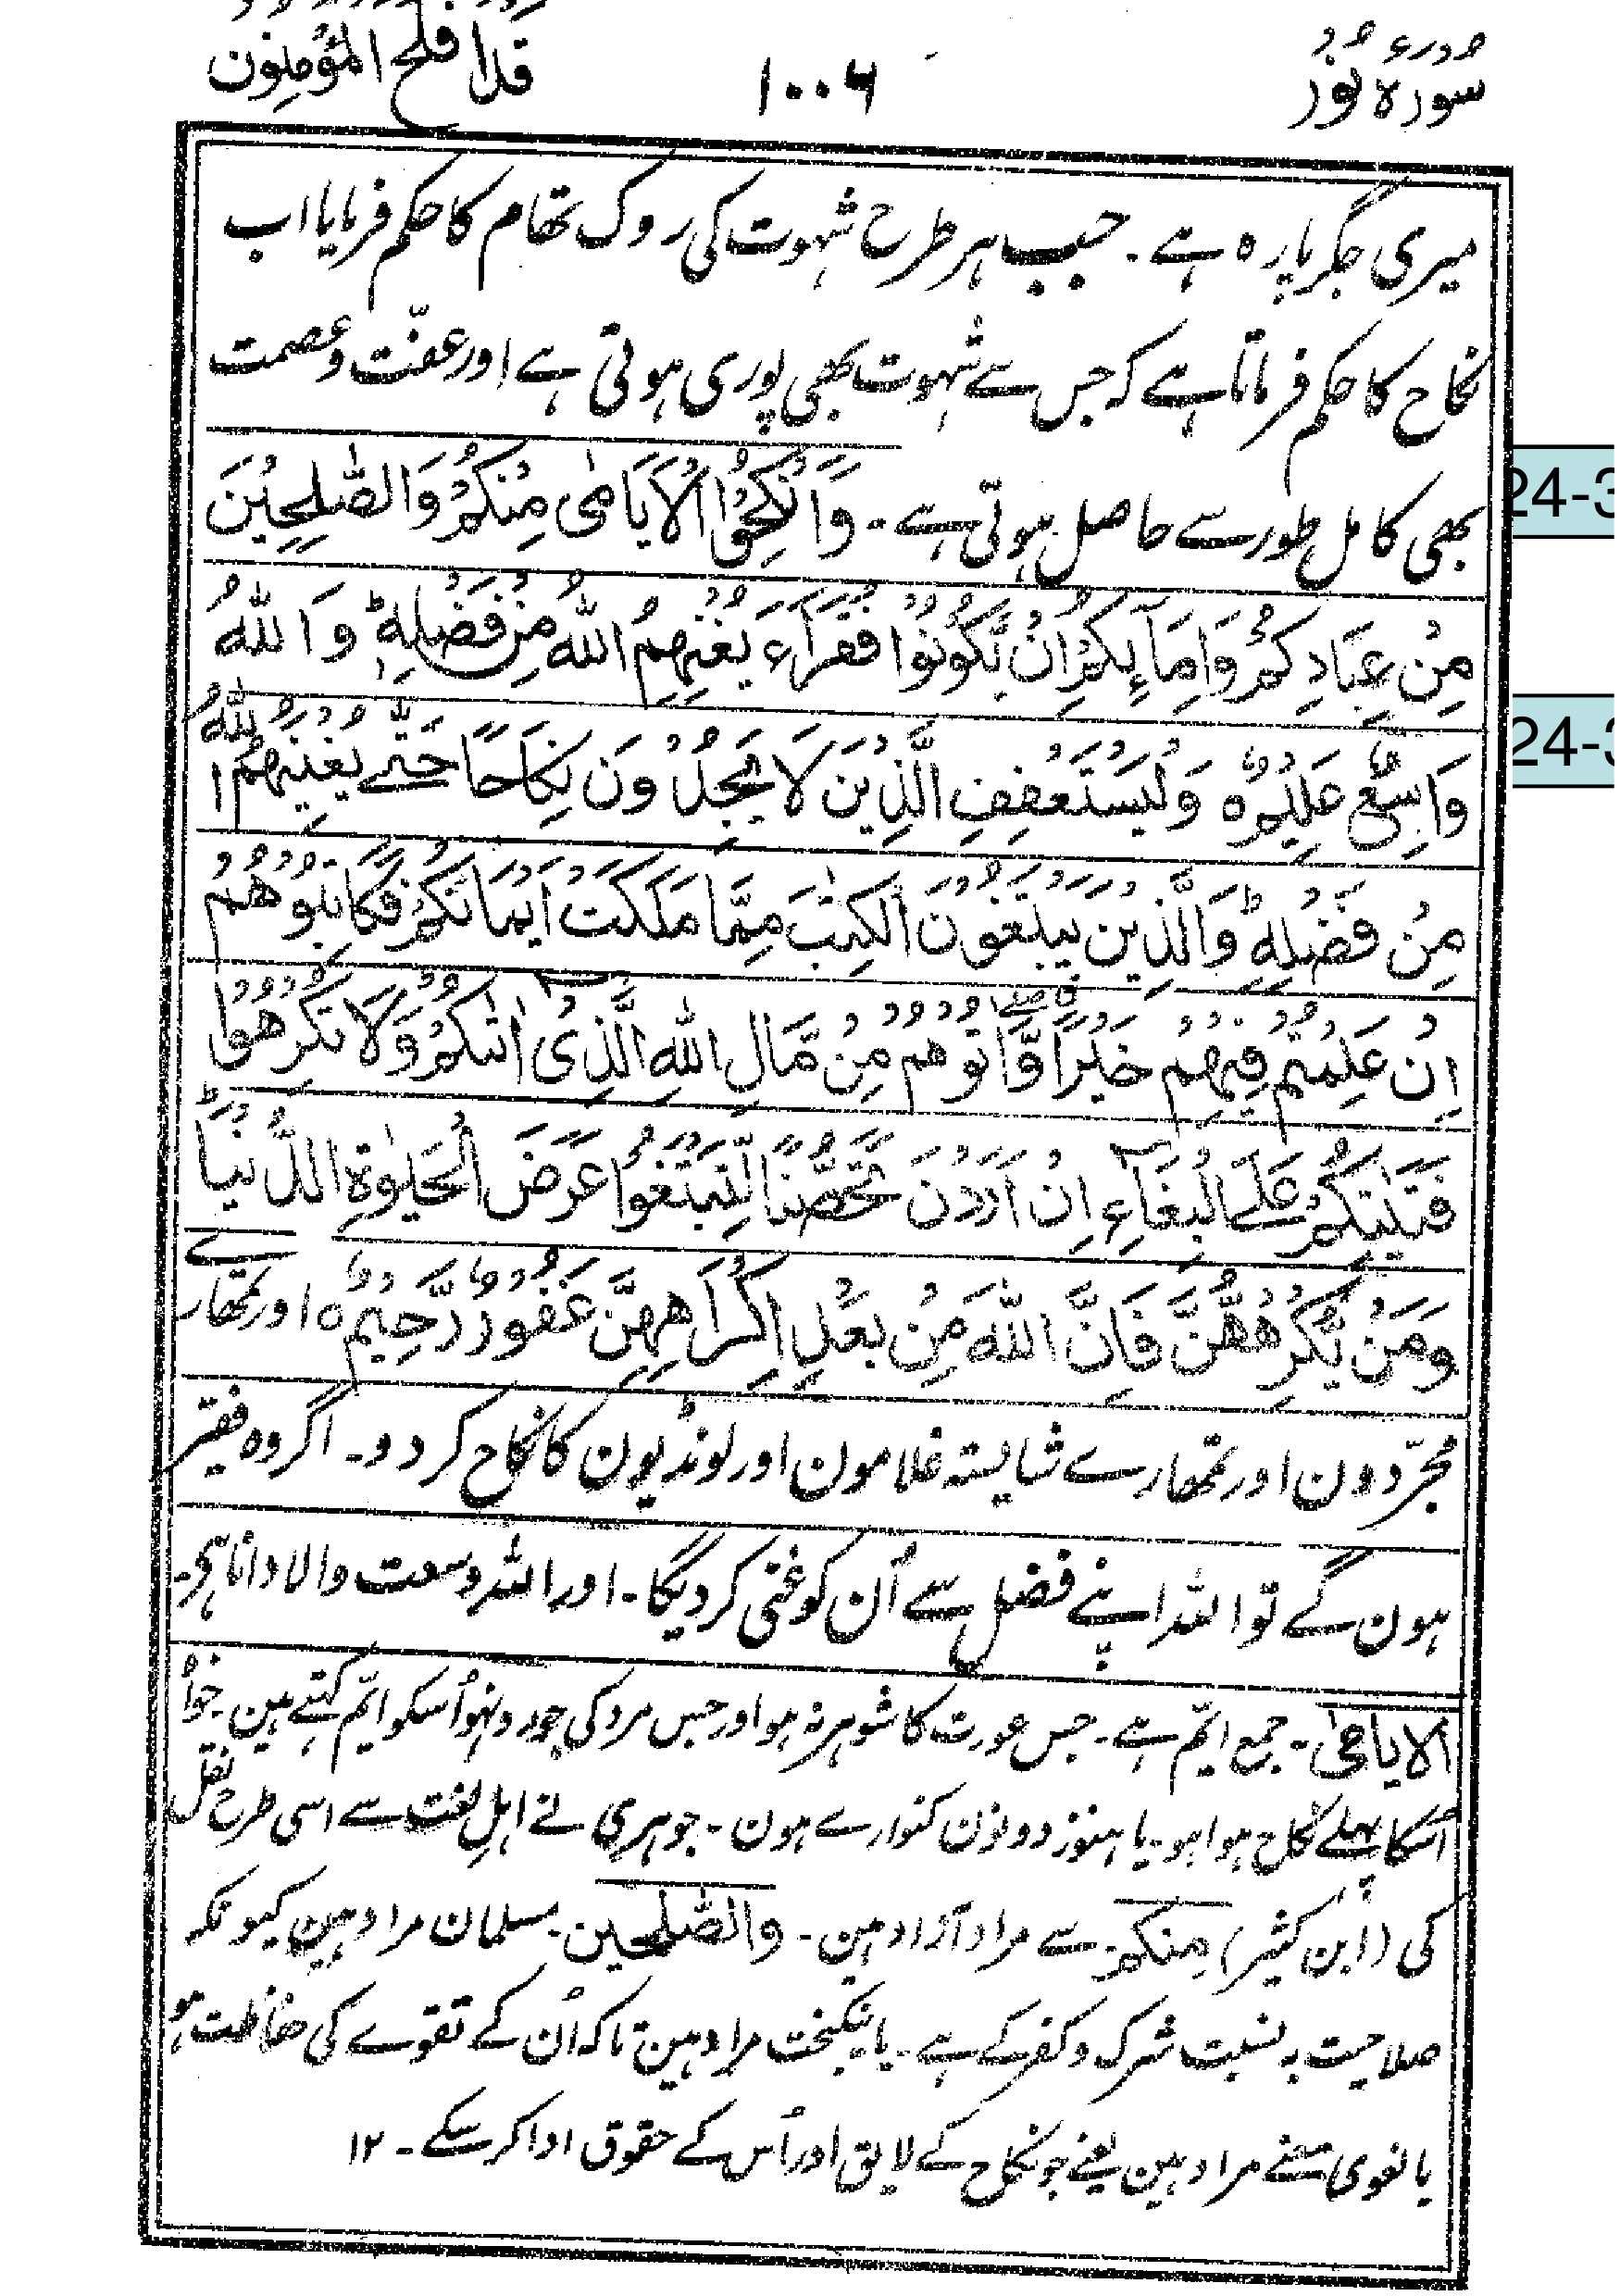 سورۃ نور
۱۰۰۶
قد افلح المؤمنون
میری جگر پارہ ہے۔ جب ہر طرح شہوت کی روک تھام کا حکم فرمایا اب
نکاح کا حکم فرماتا ہے کہ جس سے شہوت بھی پوری ہوتی ہے اور عفّت و عصمت
بھی کامل طور سے حاصل ہوتی ہے۔ وَاَنْکِحُوا الْاَیَامٰی مِنْکُمْ وَالصّٰلِحِیْنَ
مِنْ عِبَادِکُمْ وَاِمَآئِکُمْ اِنْ یَّکُوْنُوْا فُقَرَآءَ یُغْنِهِمُ اللّٰهُ مِنْ فَضْلِهٖ ؕ وَاللّٰهُ
وَاسِعٌ عَلِیْمٌ ہ وَلْیَسْتَعْفِفِ الَّذِیْنَ لَا یَجِدُوْنَ نِکَاحًا حَتّٰے یُغْنِیَهُمُ اللّٰهُ
مِنْ فَضْلِهٖ ؕ وَالَّذِیْنَ یَبْتَغُوْنَ الْکِتٰبَ مِمَّا مَلَکَتْ اَیْمَانُکُمْ فَکَاتِبُوْهُمْ
اِنْ عَلِمْتُمْ فِیْهِمْ خَیْرًا وَّاٰتُوْهُمْ مِنْ مَّالِ اللّٰهِ الَّذِیْ اٰتٰکُمْ وَلَا تُکْرِهُوْا
فَتَیٰتِکُمْ عَلَے الْبِغَآءِ اِنْ اَرَدْنَ تَحَصُّنًا لِّتَبْتَغُوْا عَرَضَ الْحَیٰوةِ الدُّنْیَا ؕ
وَمَنْ یُّکْرِهْهُّنَّ فَاِنَّ اللّٰهَ مِنْ بَعْدِ اِکْرَاهِهِنَّ غَفُوْرٌ رَّحِیْمٌ ہ اور تمھارے
مجرّدون اور تمھارے شایستہ غلامون اور لونڈیون کا نکاح کر دو۔ اگر وہ فقیر
ہون گے تو اللہ اپنے فضل سے اُن کو غنی کر دیگا۔ اور اللہ وسعت والا دانا ہے۔
الایامیٰ۔ جمع ایّم ہے۔ جس عورت کا شوہر نہ ہو اور جس مرد کی جورو نہو اُسکو ایّم کہتے ہین۔ خواہ
اُسکا پہلے نکاح ہوا ہو۔ یا ہنوز دونون کنوارے ہون۔ جوہری نے اہلِ لغت سے اسی طرح نقل
کی (ابن کثیر) منکم۔ سے مراد آزاد ہین۔ والصّٰلحین۔ مسلمان مراد ہین کیونکہ
صلاحیت بہ نسبت شرک و کفر کے ہے۔ یا نیکبخت مراد ہین تاکہ اُن کے تقوے کی حفاظت ہو
یا لغوی معنے مراد ہین یعنے جو نکاح کے لایق اور اُس کے حقوق ادا کر سکے۔ ۱۲
24-3
24-3